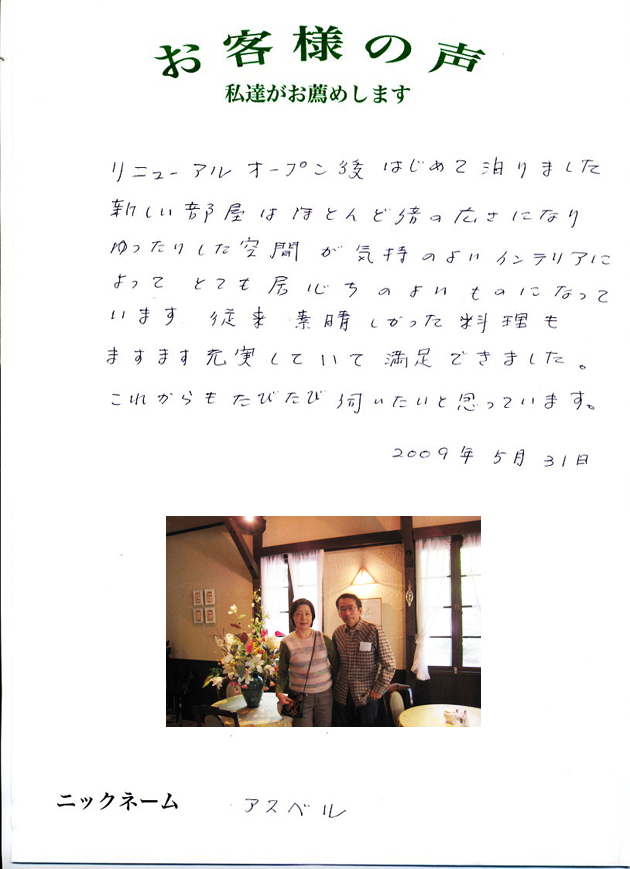 お客様の声
私達がお薦めします
リニューアルオープン後はじめて泊りました
新しい部屋はほとんど倍の広さになり
ゆったりした空間が気持のよいインテリアに
よってとても居心ちのよいものになって
います 従来素晴しかった料理も
ますます充実していて満足できました。
これからもたびたび伺いたいと思っています。
2009年5月31日
ニックネーム アスベル